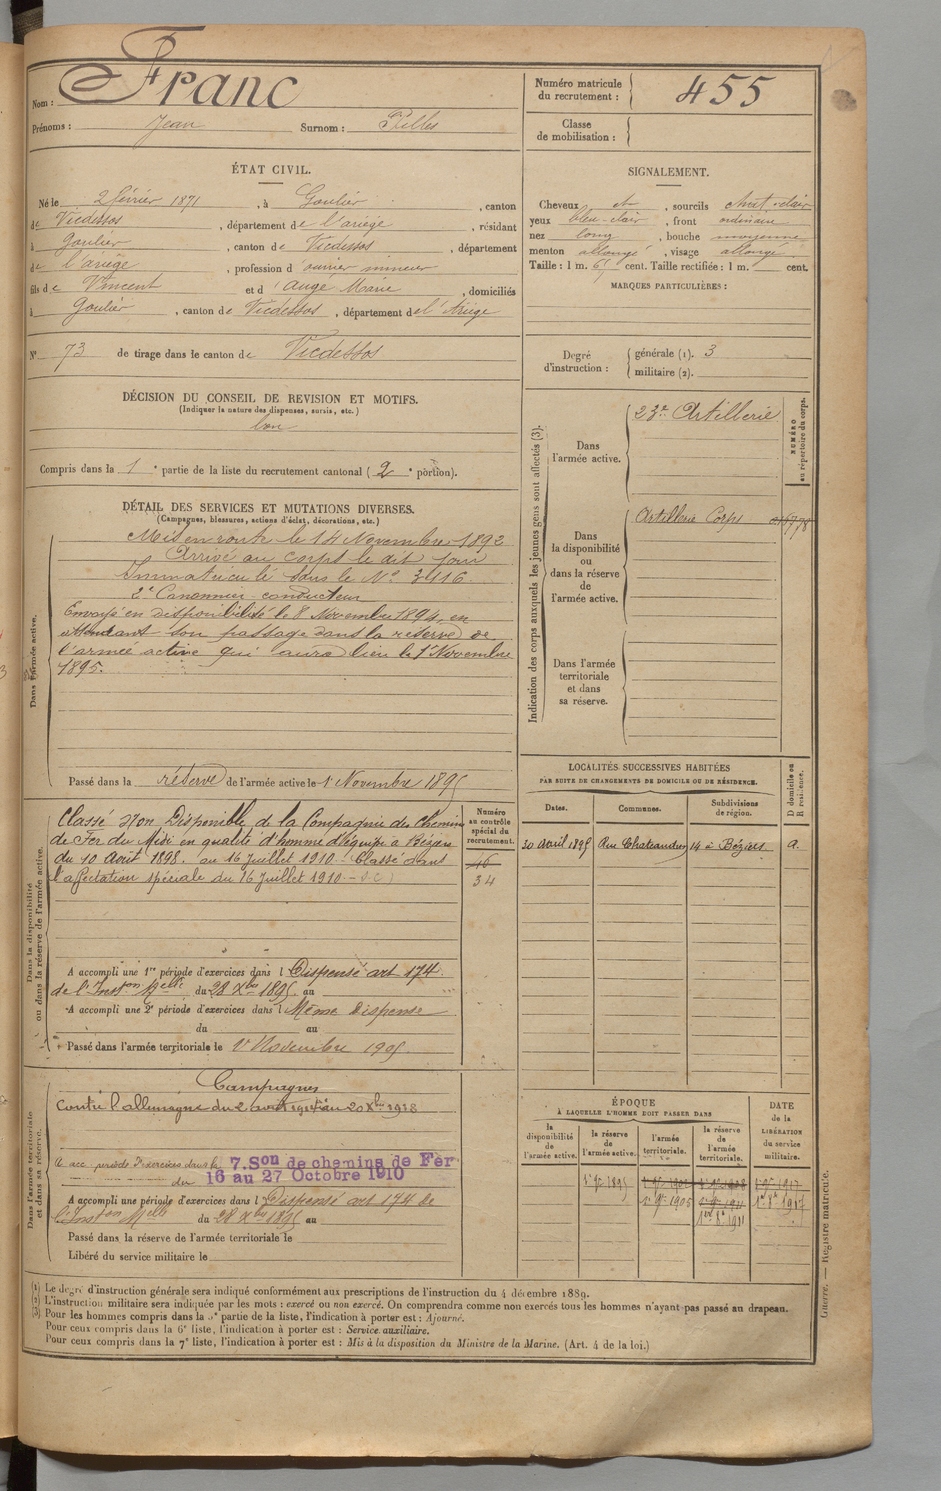 Nom : Franc
Prénoms : Jean Surnom : Pilles
Numéro matricule du recrutement : 455
Classe de mobilisation :
ÉTAT CIVIL.
Né le 2 février 1871, à Goulier, canton
de Vicdessos, département de l'ariège, résidant
à Goulier, canton de Vicdessos, département
de l'ariège, profession d'ouvrier mineur
fils de Vincent et d'Auge Marie, domiciliés
à Goulier, canton de Vicdessos, département de l'Ariège
N° 73 de tirage dans le canton de Vicdessos
SIGNALEMENT.
Cheveux et, sourcils chat-clair
yeux bleu-clair, front ordinaire
nez long, bouche moyenne
menton allongé, visage allongé
Taille : 1 m. 61 cent. Taille rectifiée : 1 m. cent.
MARQUES PARTICULIÈRES :
Degré d'instruction : générale (1). 3
militaire (2).
DÉCISION DU CONSEIL DE REVISION ET MOTIFS.
(Indiquer la nature des dispenses, sursis, etc.)
bon
Compris dans la 1e partie de la liste du recrutement cantonal (2e portion).
DÉTAIL DES SERVICES ET MUTATIONS DIVERSES.
(Campagnes, blessures, actions d'éclat, décorations, etc.)
Dans l'armée active.
Mis en route le 14 Novembre 1892
Arrivé au corps le dit jour
Immatriculé sous le N° 3416
2e Canonnier conducteur
Envoyé en disponibilité le 8 Novembre 1894, en
attendant son passage dans la réserve de
l'armée active qui aura lieu le 1er Novembre
1895.
Passé dans la réserve de l'armée active le 1er Novembre 1895
Indication des corps auxquels les jeunes gens sont affectés (3).
NUMÉRO au répertoire du corps.
Dans l'armée active.
23e Artillerie
Dans la disponibilité ou dans la réserve de l'armée active.
Artillerie Corps
Dans l'armée territoriale et dans sa réserve.
Dans la disponibilité ou dans la réserve de l'armée active.
Numéro au contrôle spécial du recrutement.
Classé Non Disponible de la Compagnie des Chemins
de Fer du Midi en qualité d'homme d'équipe à Béziers
du 10 Août 1898. au 16 Juillet 1910 - Classé dans
l'affectation spéciale du 16 Juillet 1910 - S.C.)
46
34
A accompli une 1re période d'exercices dans l Dispensé art 174
de l'Inston Melle du 28 Xbre 1895 au
A accompli une 2e période d'exercices dans l Même dispense
du au
Passé dans l'armée territoriale le 1er Novembre 1905
LOCALITÉS SUCCESSIVES HABITÉES
PAR SUITE DE CHANGEMENTS DE DOMICILE OU DE RÉSIDENCE.
Dates. Communes. Subdivisions de région. D domicile ou R résidence.
30 avril 1895 Rue Chateaudun 14 à Béziers
Dans l'armée territoriale et dans sa réserve.
Campagnes
Contre l'allemagne du 2 août 1914 au 20 Xbre 1918
A acc. période d'exercices dans la 7. Son de chemins de Fer
du 16 au 27 Octobre 1910
A accompli une période d'exercices dans l Dispensé art 174 de
l'Inston Melle du 28 Xbre 1895 au
Passé dans la réserve de l'armée territoriale le
Libéré du service militaire le
ÉPOQUE
À LAQUELLE L'HOMME DOIT PASSER DANS
DATE de la LIBÉRATION du service militaire.
la disponibilité de l'armée active. la réserve de l'armée active. l'armée territoriale. la réserve de l'armée territoriale.
1er 9bre 1895
1er 9bre 1905
1er 8bre 1911
1er 8bre 1917
(1) Le degré d'instruction générale sera indiqué conformément aux prescriptions de l'instruction du 4 décembre 1889.
(2) L'instruction militaire sera indiquée par les mots : exercé ou non exercé. On comprendra comme non exercés tous les hommes n'ayant pas passé au drapeau.
(3) Pour les hommes compris dans la 5e partie de la liste, l'indication à porter est : Ajourné.
Pour ceux compris dans la 6e liste, l'indication à porter est : Service auxiliaire.
Pour ceux compris dans la 7e liste, l'indication à porter est : Mis à la disposition du Ministre de la Marine. (Art. 4 de la loi.)
Guerre. — Registre matricule.